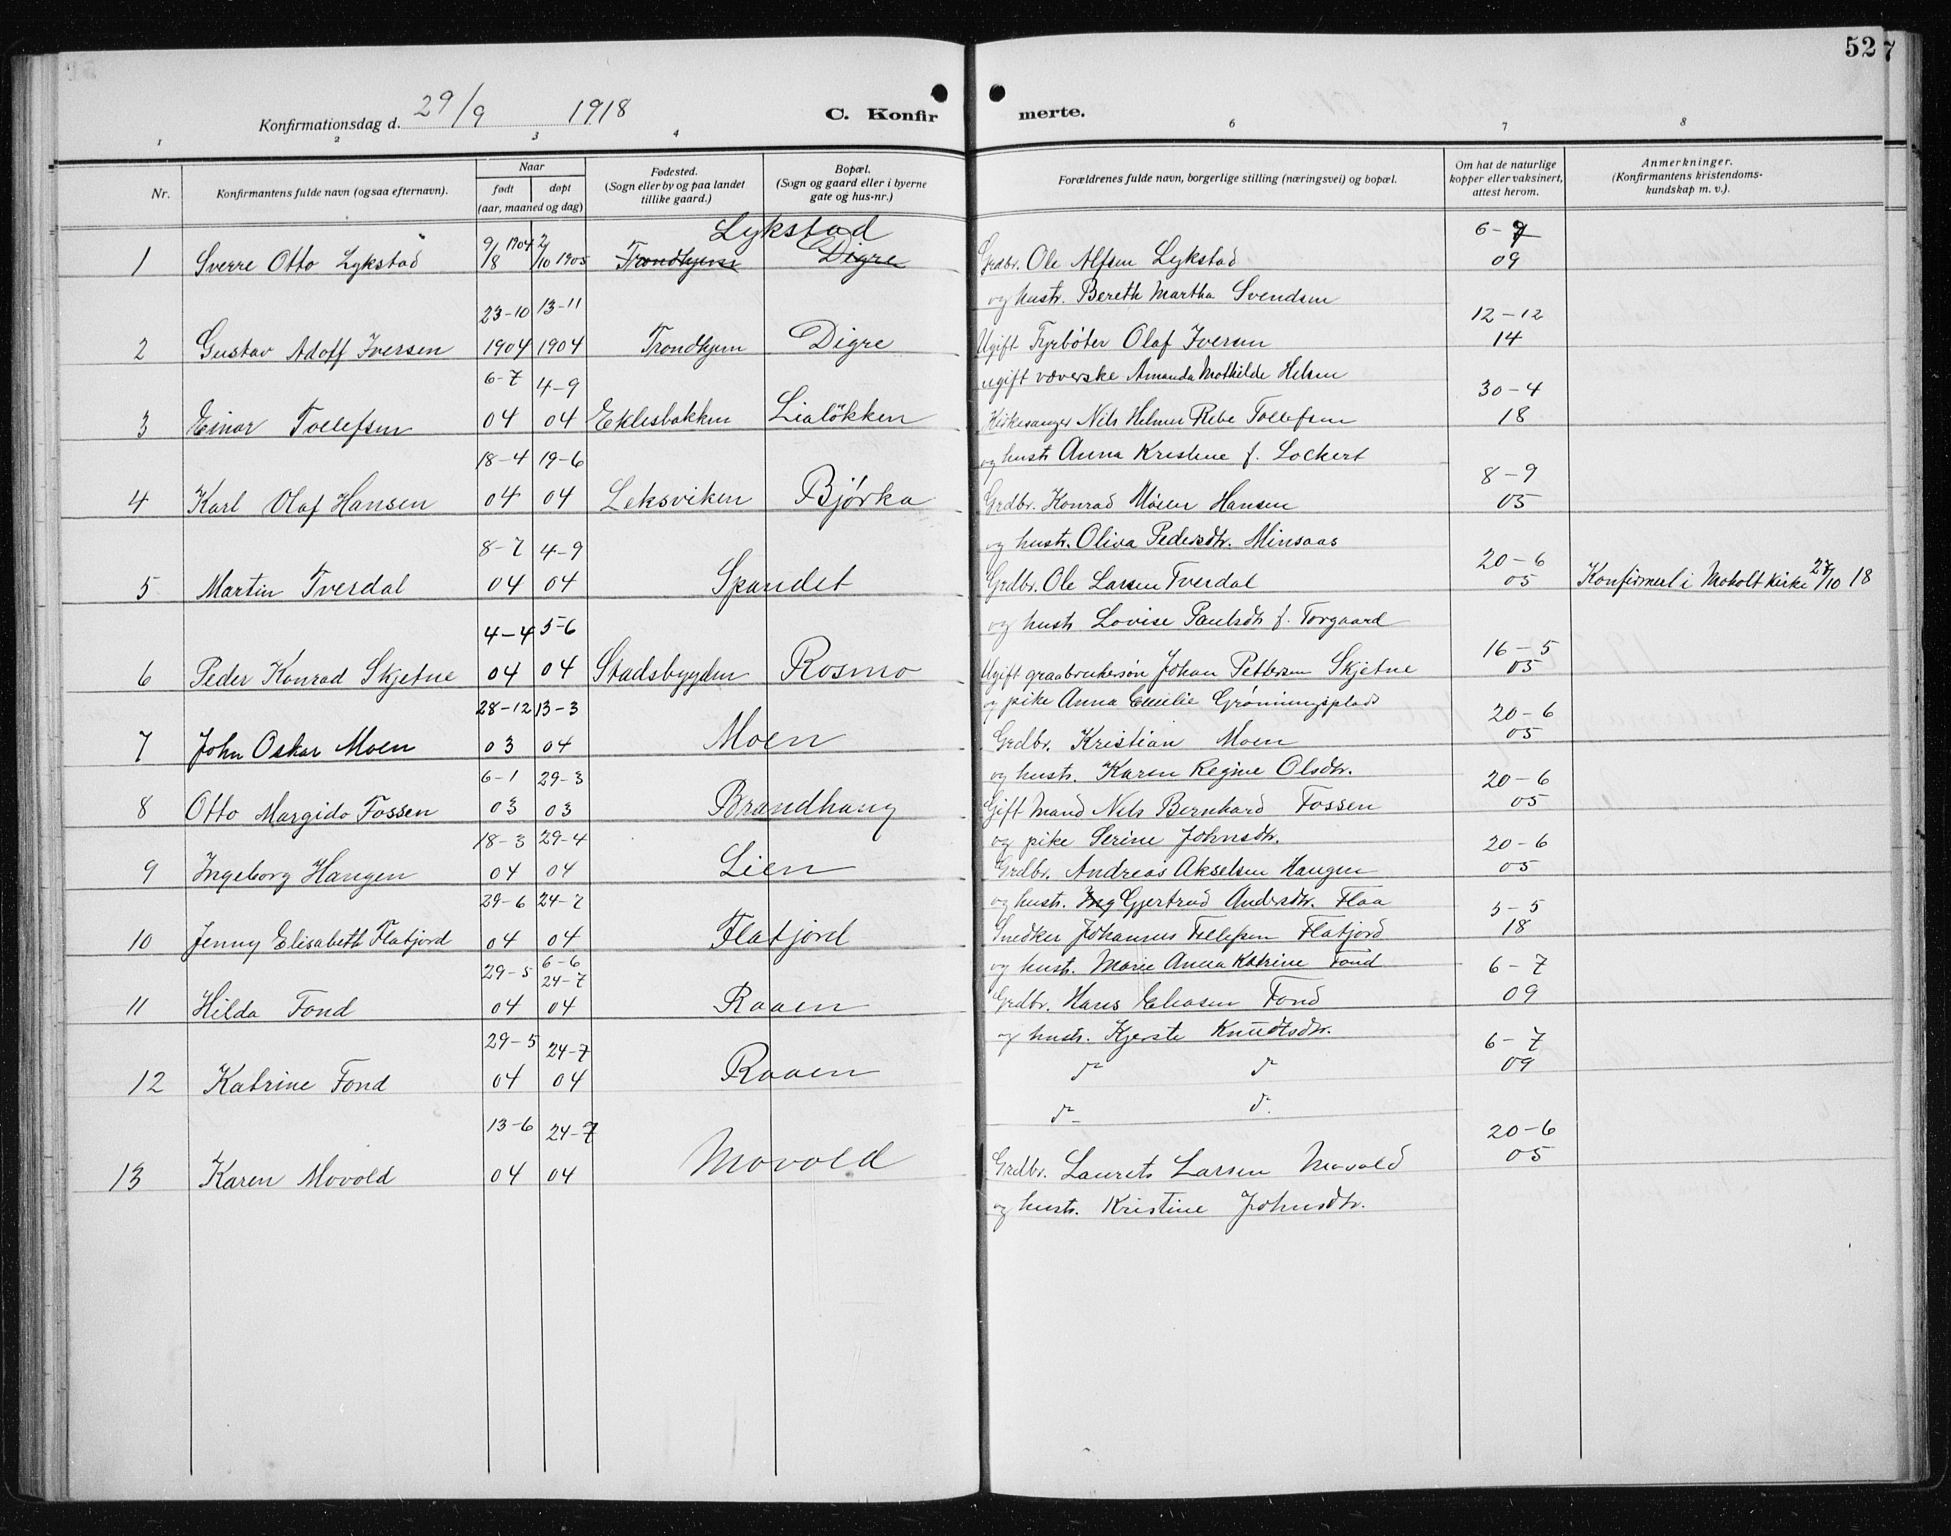 52
7
Konfirmationsdag d. 29/9 1918
C. Konfir merte.
1 2 3 4 6 7 8
Nr.
Konfirmantens fulde navn (ogsaa efternavn).
Naar
født døpt
(aar, maaned og dag)
Fødested.
(Sogn eller by og paa landet
tillike gaard.)
Bopæl.
(Sogn og gaard eller i byerne
gate og hus-nr.)
Forældrenes fulde navn, borgerlige stilling (næringsvei) og bopæl.
Om hat de naturlige
kopper eller vaksinert,
attest herom.
Anmerkninger.
(Konfirmantens kristendoms-
kundskap m. v.).
Lykstad 6-7
1 Sverre Otto Lykstad 9/8 1904 2/10 1905 Trondhjem Digre Grdbr. Ole Alfsen Lykstad 09
og hustr. Bereth Martha Svendsen
23-10 13-11 12-12
2 Gustav Adolf Iversen 1904 1904 Trondhjem Digre Ugift Fyrbøter Olaf Iversen 14
6-7 4-9 ugift væverske Amanda Mathilde Helsen 30-4
3 Einar Tollefsen 04 04 Eklesbakken Lialökken Kirkesanger Nils Helmer Rebe Tollefsen 18
18-4 19-6 og hustr Anna Kristine f. Lockert 8-9
4 Karl Olaf Hansen 04 04 Leksviken Bjørka Grdbr. Konrad Møller Hansen 05
8-7 4-9 og hustr. Oliva Pedersdtr. Minsaas 20-6
5 Martin Tverdal 04 04 Spandet Grdbr. Ole Larsen Tverdal 05 Konfirmert i Moholt kirke 27/10 18
4-4 5-6 og hustr Lovise Paulsdtr f. Torgaard 16-5
6 Peder Konrad Skjetne 04 04 Stadsbygden Rosmo Ugift graabrukersøn Johan Pettersen Skjetne 05
28-12 13-3 og pike Anna Emilie Grønningsplads 20-6
7 John Oskar Moen 03 04 Moen Grdbr. Kristian Moen 05
6-1 29-3 og hustr. Karen Regine Olsdtr. 20-6
8 Otto Margido Fossen 03 03 Brandhaug Gift Mand Nils Bernhard Fossen 05
18-3 29-4 og pike Serine Johnsdtr. 20-6
9 Ingeborg Haugen 04 04 Lien Grdbr. Andreas Akselsen Haugen 05
29-6 24-7 og hustr. Ing Gjertrud Andersdtr. Flaa 5-5
10 Jenny Elisabeth Flatjord 04 04 Flatjord Snedker Johannes Tollefsen Flatjord 18
29-5 6-6 24-7 og hustr. Marie Anna Katrine Fond 6-7
11 Hilda Fond 04 04 Raaen Grdbr. Hans Eliasen Fond 09
29-5 24-7 og hustr. Kjerste Knudtsdtr. 6-7
12 Katrine Fond 04 04 Raaen do do 09
do do
13-6 24-7 20-6
13 Karen Movold 04 04 Movold Grdbr. Laurits Larsen Movold 05
og hustr. Kristine Johnsdtr.